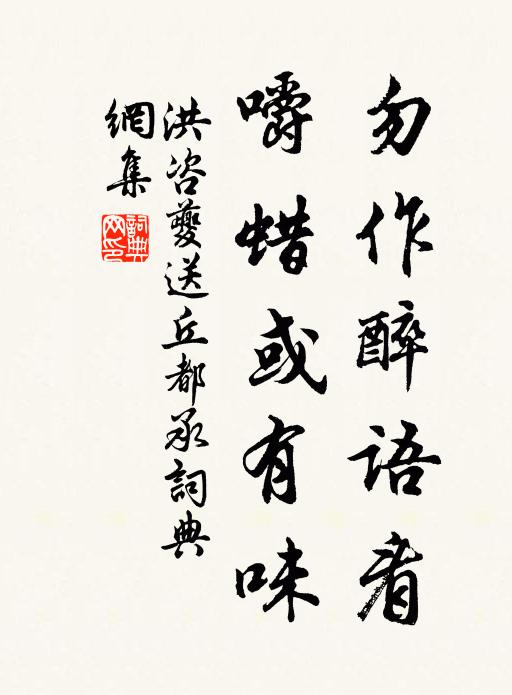 勿作醉語看
嚼蜡或有味
洪咨夔送丘都承詞典
網集
詞典網印